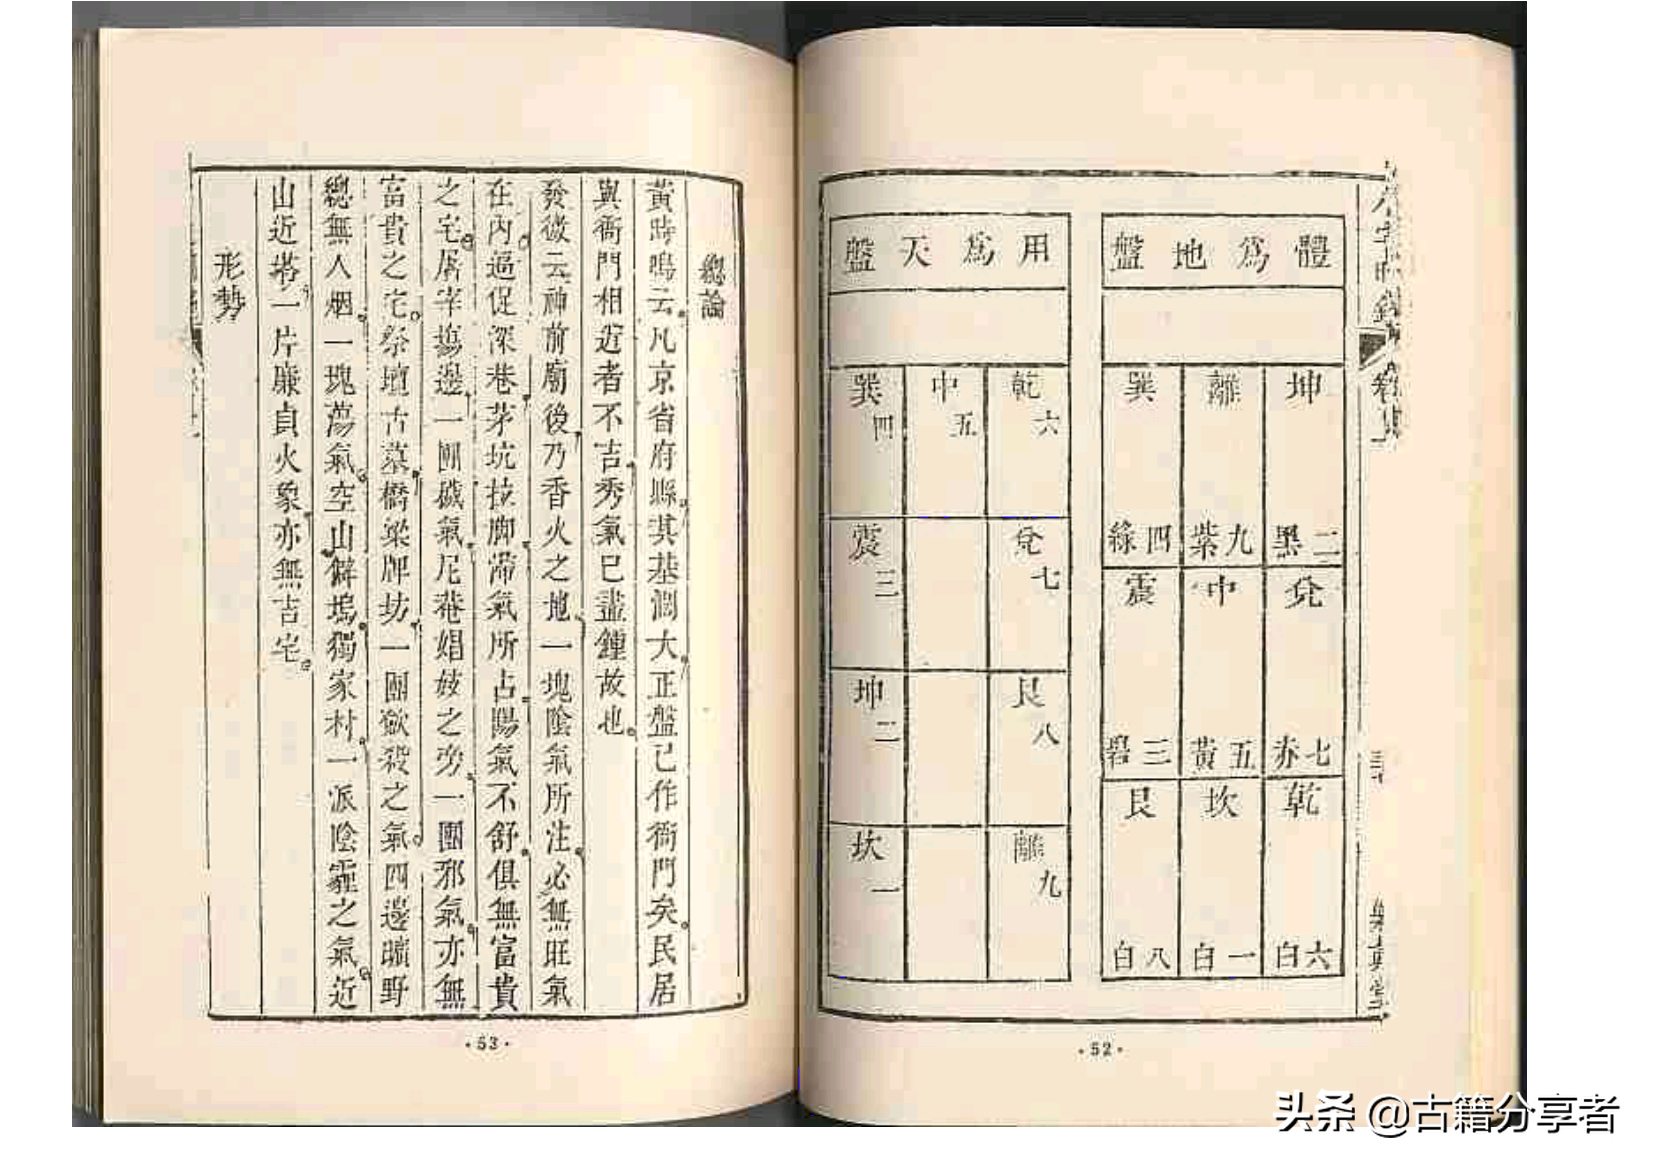 體爲地盤
坤 二黑
離 九紫
巽 四綠
兌 七赤
中 五黃
震 三碧
乾 六白
坎 一白
艮 八白
用爲天盤
乾六
中五
巽四
兌七
震三
艮八
坤二
離九
坎一
·52·
總論
黃時鳴云凡京省府縣其基濶大正盤已作衙門矣民居
與衙門相近者不吉秀氣已盡鍾故也
發微云神前廟後乃香火之地一塊陰氣所注必無旺氣
在內逼促深巷茅坑拉脚滯氣所占陽氣不舒俱無富貴
之宅屠宰塲邊一團穢氣尼菴娼妓之旁一團邪氣亦無
富貴之宅祭壇古墓橋梁牌坊一團歛殺之氣四邊曠野
總無人烟一塊蕩氣空山僻塢獨家村一派陰霾之氣近
山近塔一片廉貞火象亦無吉宅
形勢
·53·
头条 @古籍分享者